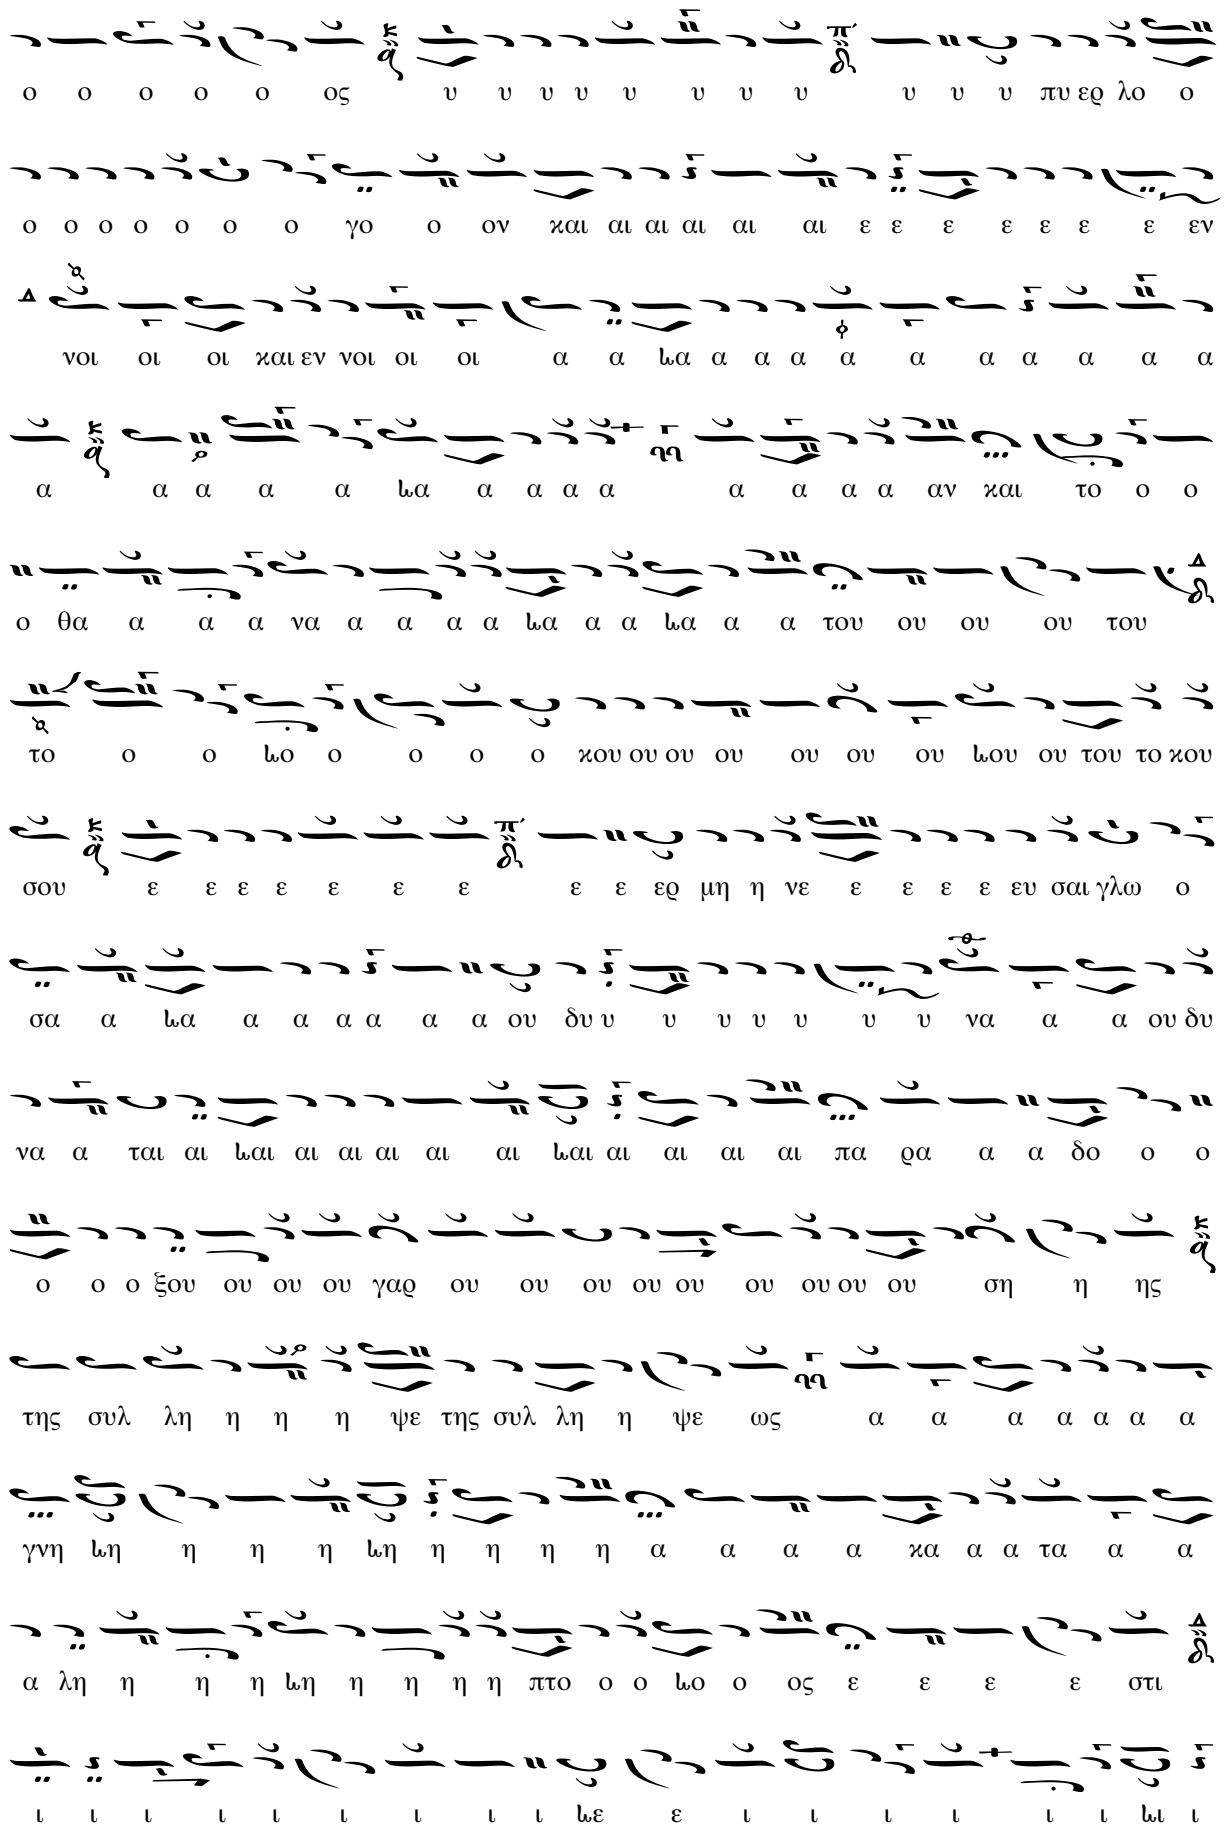 ο ο ο ο ο ος υ υ υ υ υ υ υ υ υ υ υ πυ ερ λο ο
ο ο ο ο ο ο ο γο ο ον και αι αι αι αι αι ε ε ε ε ε ε ε εν
νοι οι οι και εν νοι οι οι α α ια α α α α α α α α α α
α α α α α ια α α α α α α α α αν και το ο ο
ο θα α α α να α α α α ια α α ια α α του ου ου ου του
το ο ο ιο ο ο ο ο κου ου ου ου ου ου ου ιου ου του το κου
σου ε ε ε ε ε ε ε ε ε ερ μη η νε ε ε ε ε ευ σαι γλω ο
σα α ια α α α α α α ου δυ υ υ υ υ υ υ υ να α α ου δυ
να α ται αι ιαι αι αι αι αι αι ιαι αι αι αι αι πα ρα α α δο ο ο
ο ο ο ξου ου ου ου γαρ ου ου ου ου ου ου ου ου ου ση η ης
της συλ λη η η η ψε της συλ λη η ψε ως α α α α α α α
γνη ιη η η η ιη η η η η α α α α κα α α τα α α
α λη η η η ιη η η η η πτο ο ο ιο ο ος ε ε ε ε στι
ι ι ι ι ι ι ι ι ι ιε ε ι ι ι ι ι ι ιι ι